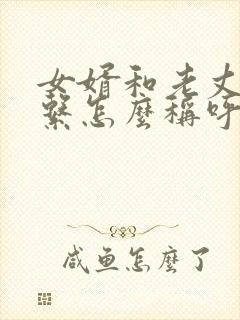 女婿和老丈
繫怎麼稱呼
咸鱼怎麼了